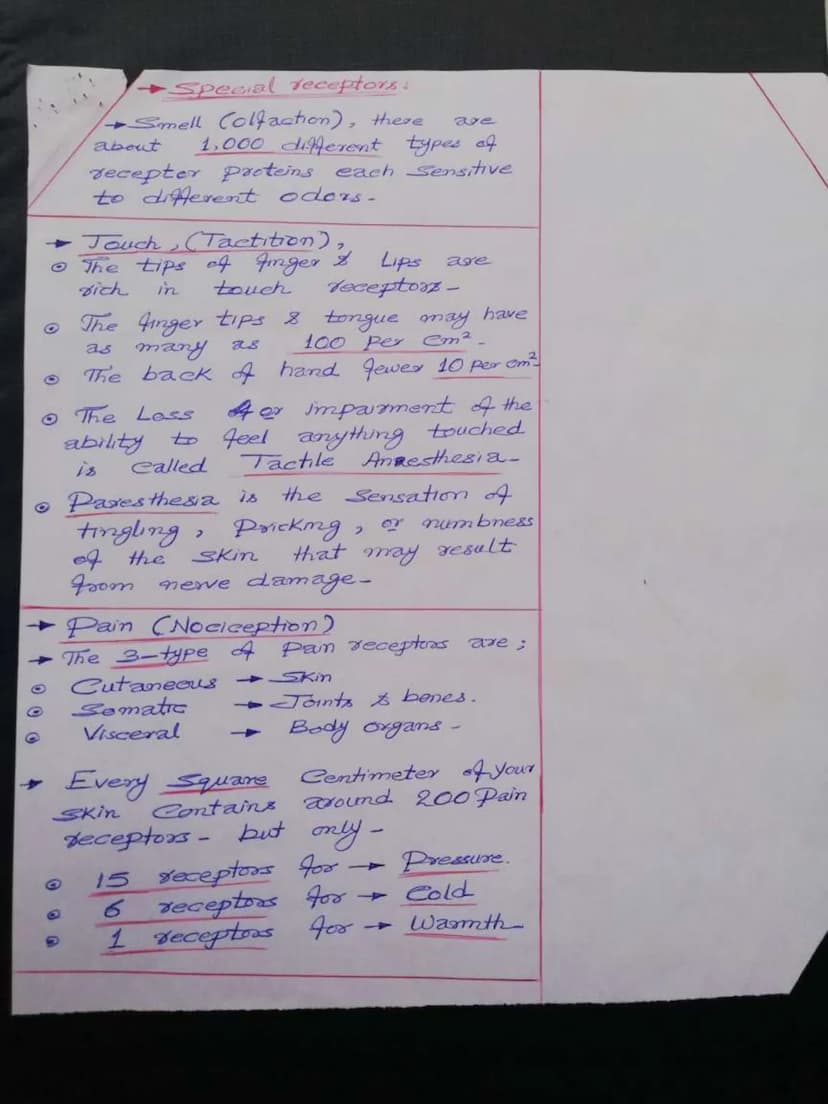 → Special receptors:
→ Smell (olfaction), there are
about 1,000 different types of
receptor proteins each sensitive
to different odors.
→ Touch, (Tactition),
⊙ The tips of finger & Lips are
rich in touch receptors-
⊙ The finger tips & tongue may have
as many as 100 Per cm².
⊙ The back of hand fewer 10 per cm²
⊙ The Loss or impairment of the
ability to feel anything touched
is called Tactile Anaesthesia-
⊙ Paresthesia is the sensation of
tingling, Pricking, or numbness
of the skin that may result
from nerve damage-
→ Pain (Nociception)
→ The 3-type of Pain receptors are;
⊙ Cutaneous → Skin
⊙ Somatic → Joints & bones.
⊙ Visceral → Body organs-
→ Every Square Centimeter of your
skin Contains around 200 Pain
receptors- but only-
⊙ 15 receptors for → Pressure.
⊙ 6 receptors for → Cold
⊙ 1 receptors for → Warmth